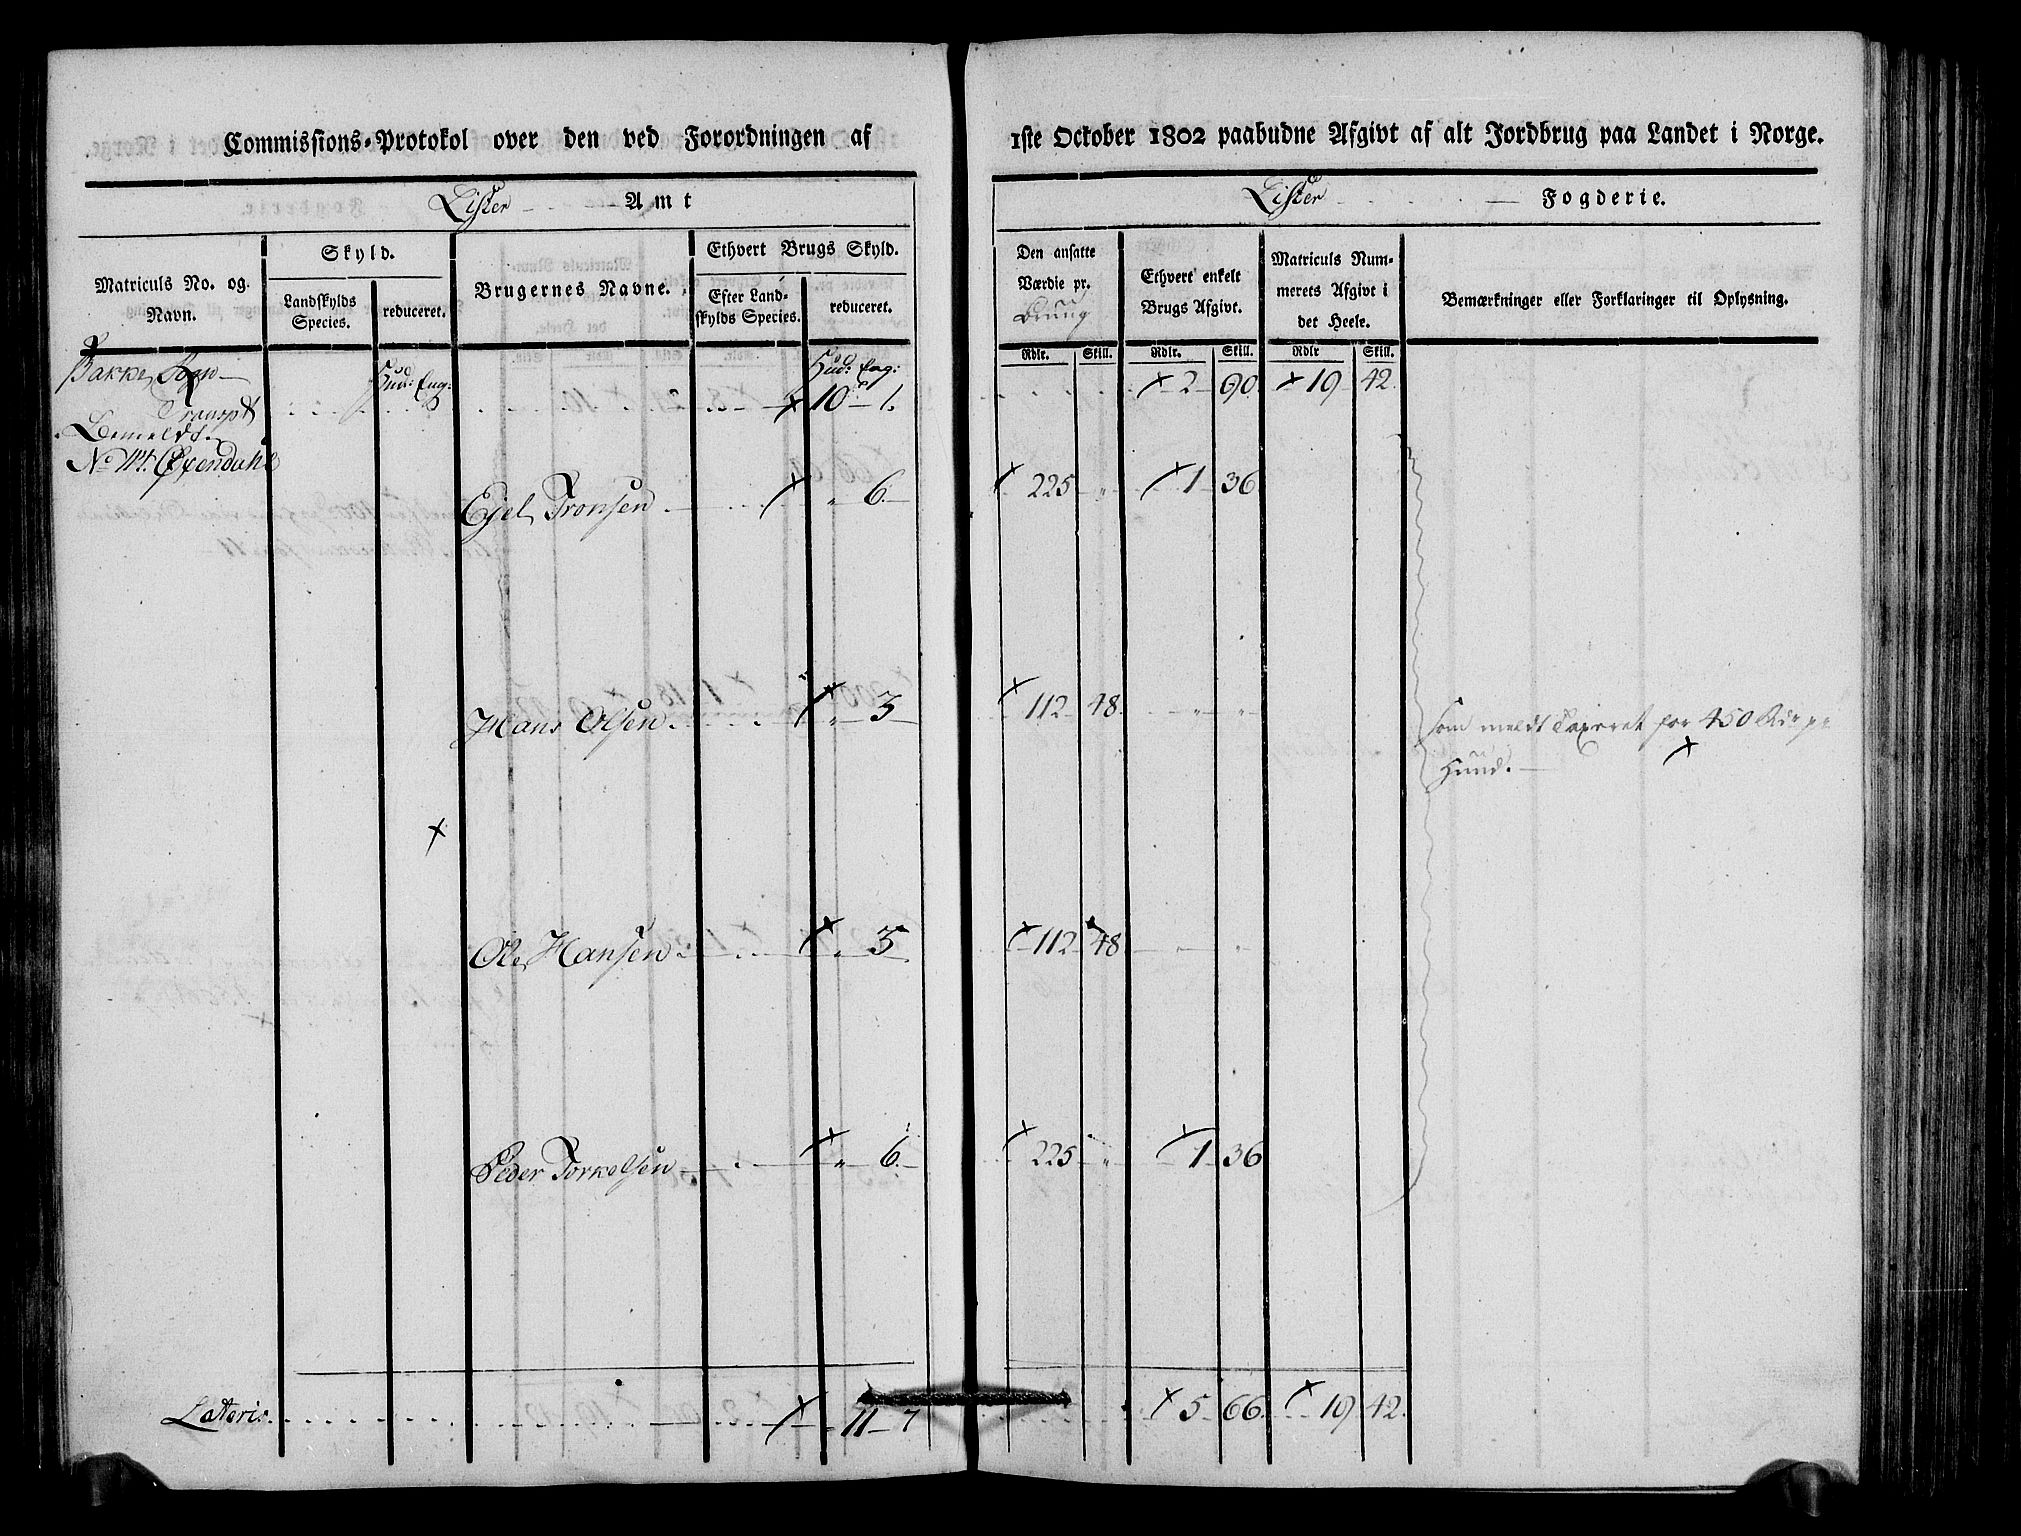 Commissions-Protokol over den ved Forordningen af 1ste October 1802 paabudne Afgivt af alt Jordbrug paa Landet i Norge.
Lister Amt
Lister Fogderie.
Matriculs No. og Navn.
Skyld.
Landskylds Species.
reduceret.
Brugernes Navne.
Ethvert Brugs Skyld.
Efter Landskylds Species.
reduceret.
Den ansatte Værdie pr. Brug
Ethvert enkelt Brugs Afgivt.
Matriculs Nummerets Afgivt i det Heele.
Bemærkninger eller Forklaringer til Oplysning.
Rdlr. Skill. Rdlr. Skill. Rdlr Skill.
Bakke Sogn
Hud: Eng: Hud: Eng:
Transpt × 10 1. × 2 90 × 19 42.
Bemeldte
No 114. Øxendahl
Ejel Tronsen × " 6. × 225 " × 1 36
Hans Olsen × " 3 × 112 48. " "
som meldt Taxeret for 450 Rdr pr
Hund.
×
Ole Hansen × " 3 × 112 48 " "
Peder Torkelsen × " 6. × 225 " × 1 36
Lateris × 11 7 × 5 66. × 19 42.